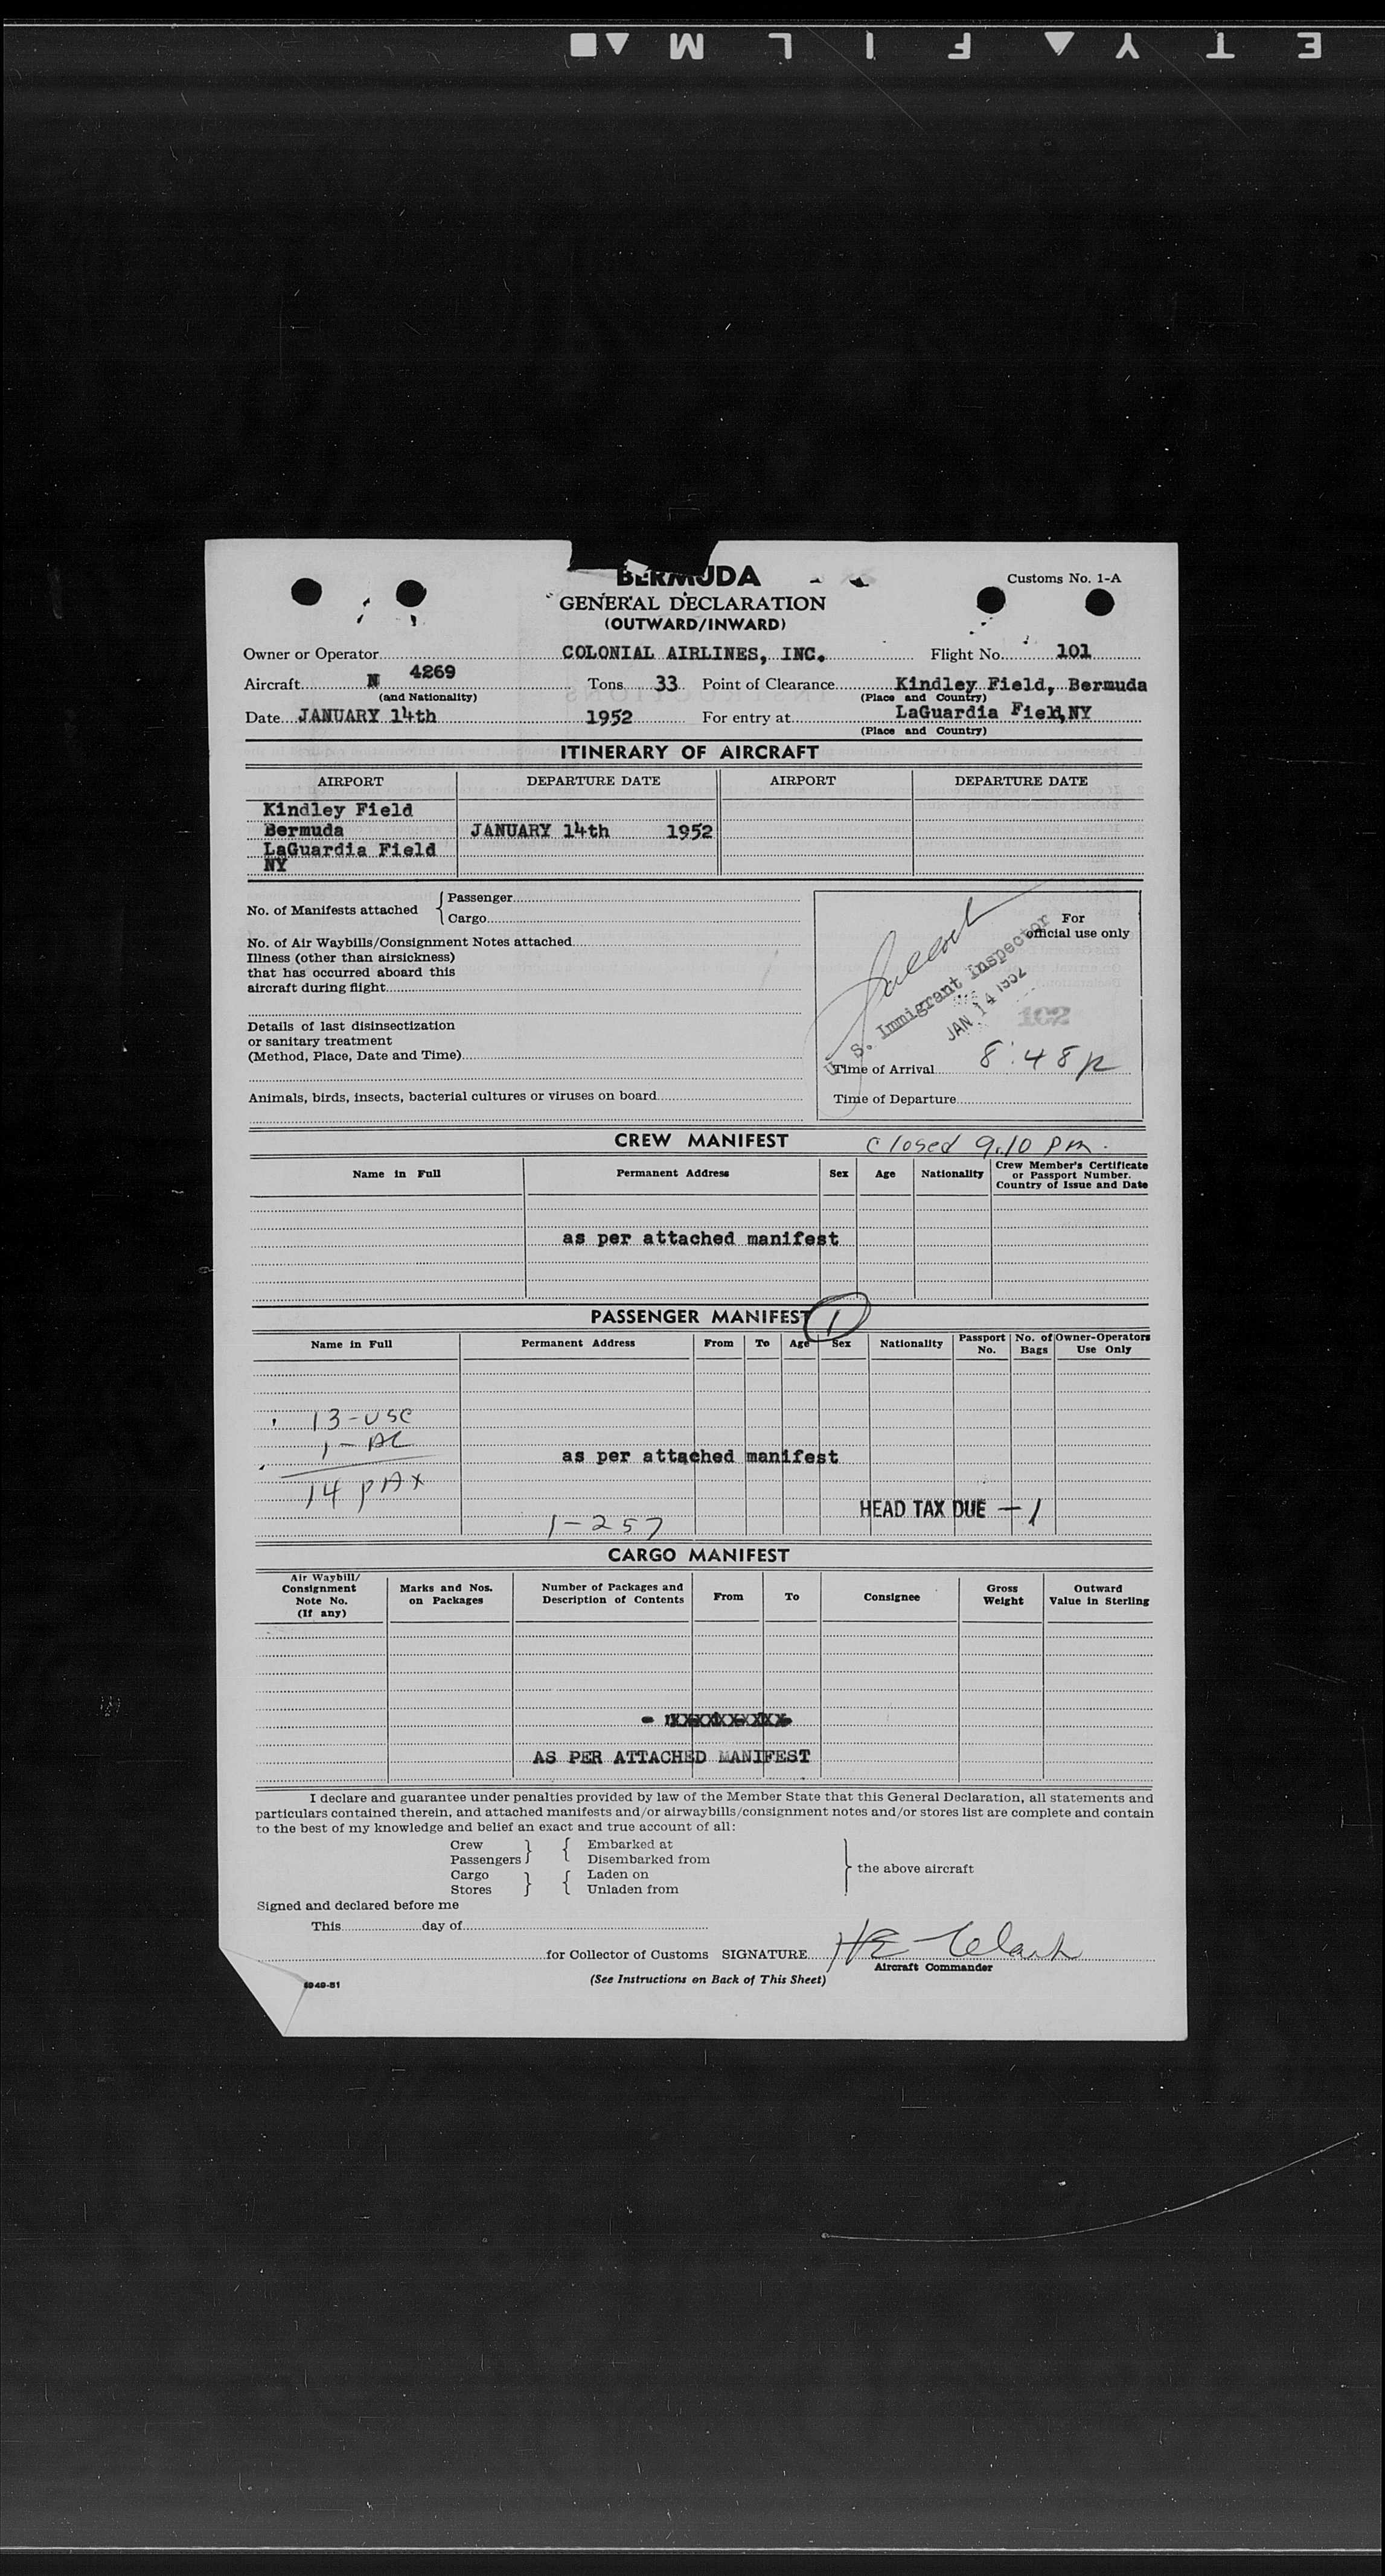 SAFETY FILM
BERMUDA
Customs No. 1-A
GENERAL DECLARATION
(OUTWARD/INWARD)
Owner or Operator COLONIAL AIRLINES, INC. Flight No. 101
Aircraft N 4269 Tons 33 Point of Clearance Kindley Field, Bermuda
(and Nationality) (Place and Country)
Date JANUARY 14th 1952 For entry at LaGuardia Field, NY
(Place and Country)
ITINERARY OF AIRCRAFT
AIRPORT DEPARTURE DATE AIRPORT DEPARTURE DATE
Kindley Field
Bermuda JANUARY 14th 1952
LaGuardia Field
NY
No. of Manifests attached { Passenger
Cargo
No. of Air Waybills/Consignment Notes attached
Illness (other than airsickness)
that has occurred aboard this
aircraft during flight
Details of last disinsectization
or sanitary treatment
(Method, Place, Date and Time)
Animals, birds, insects, bacterial cultures or viruses on board
For
official use only
U. S. Immigrant Inspector
JAN 14 1952
102
Time of Arrival 8:48p
Time of Departure
CREW MANIFEST closed 9.10 pm.
Name in Full Permanent Address Sex Age Nationality Crew Member's Certificate
or Passport Number.
Country of Issue and Date
as per attached manifest
PASSENGER MANIFEST 1
Name in Full Permanent Address From To Age Sex Nationality Passport No. No. of Bags Owner-Operators Use Only
13-USC
1-AL
as per attached manifest
14 PAX
HEAD TAX DUE - 1
1-257
CARGO MANIFEST
Air Waybill/
Consignment
Note No.
(If any)
Marks and Nos.
on Packages
Number of Packages and
Description of Contents
From To Consignee
Gross
Weight
Outward
Value in Sterling
AS PER ATTACHED MANIFEST
I declare and guarantee under penalties provided by law of the Member State that this General Declaration, all statements and
particulars contained therein, and attached manifests and/or airwaybills/consignment notes and/or stores list are complete and contain
to the best of my knowledge and belief an exact and true account of all:
Crew } { Embarked at
Passengers Disembarked from
} the above aircraft
Cargo } { Laden on
Stores Unladen from
Signed and declared before me
This day of
for Collector of Customs SIGNATURE HE Clark
Aircraft Commander
(See Instructions on Back of This Sheet)